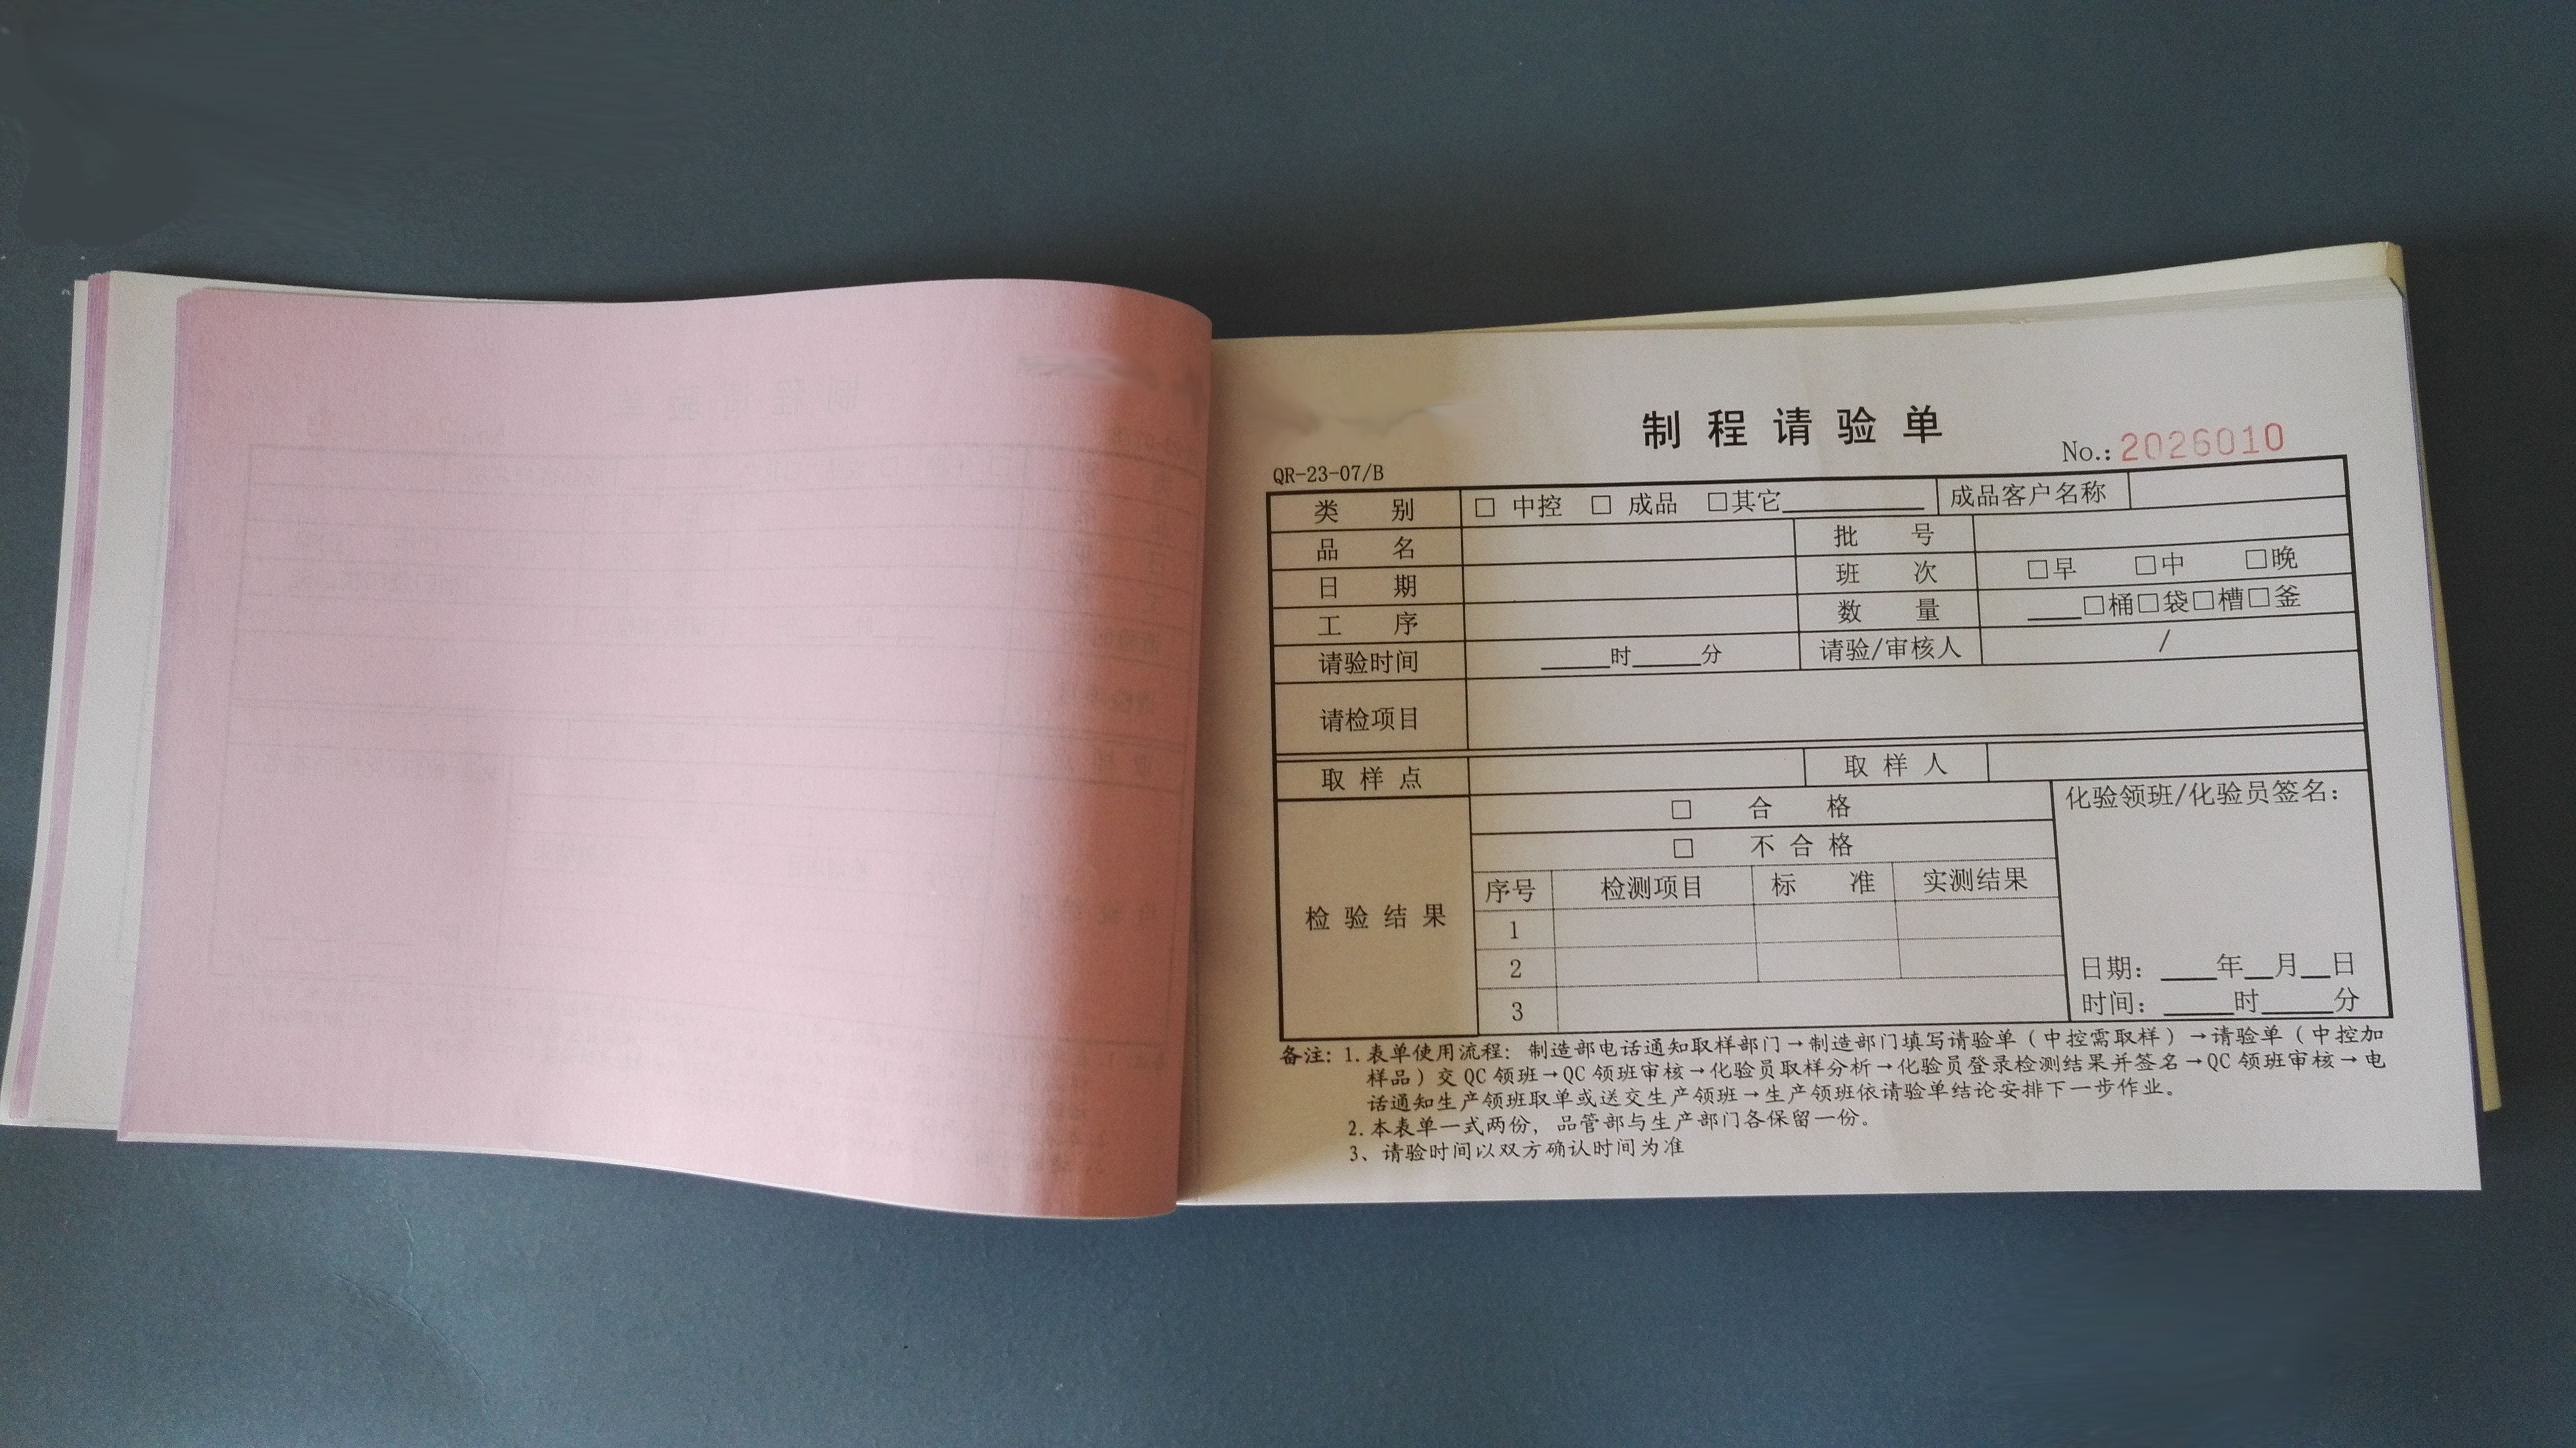 制程请验单
No.: 2026010
QR-23-07/B
类 别 □ 中控 □ 成品 □其它______ 成品客户名称
品 名 批 号
日 期 班 次 □早 □中 □晚
工 序 数 量 ____□桶□袋□槽□釜
请验时间 _____时_____分 请验/审核人 /
请检项目
取 样 点 取 样 人
检 验 结 果
□ 合 格
□ 不 合 格
序号 检测项目 标 准 实测结果
1
2
3
化验领班/化验员签名：
日期：____年__月__日
时间：_____时_____分
备注：1. 表单使用流程：制造部电话通知取样部门→制造部门填写请验单（中控需取样）→请验单（中控加
样品）交 QC 领班→QC 领班审核→化验员取样分析→化验员登录检测结果并签名→QC 领班审核→电
话通知生产领班取单或送交生产领班→生产领班依请验单结论安排下一步作业。
2. 本表单一式两份，品管部与生产部门各保留一份。
3、请验时间以双方确认时间为准